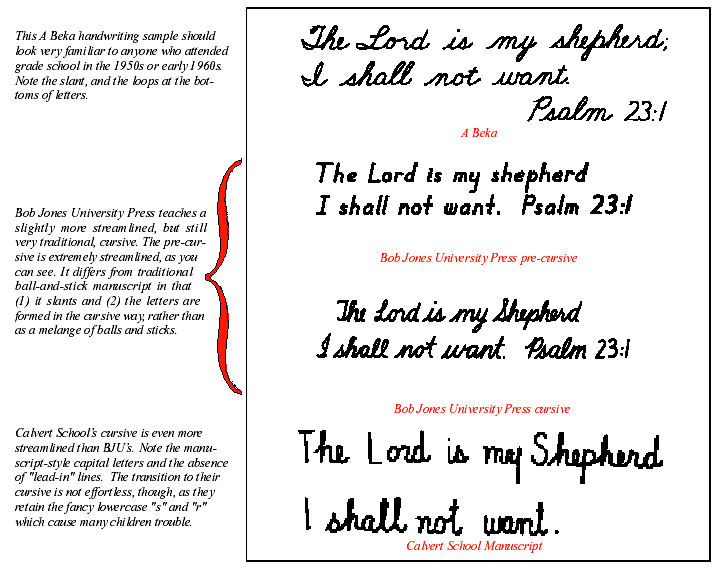 This A Beka handwriting sample should
look very familiar to anyone who attended
grade school in the 1950s or early 1960s.
Note the slant, and the loops at the bot-
toms of letters.
The Lord is my shepherd;
I shall not want.
Psalm 23:1
A Beka
Bob Jones University Press teaches a
slightly more streamlined, but still
very traditional, cursive. The pre-cur-
sive is extremely streamlined, as you
can see. It differs from traditional
ball-and-stick manuscript in that
(1) it slants and (2) the letters are
formed in the cursive way, rather than
as a melange of balls and sticks.
The Lord is my shepherd
I shall not want. Psalm 23:1
Bob Jones University Press pre-cursive
The Lord is my Shepherd
I shall not want. Psalm 23:1
Bob Jones University Press cursive
Calvert School's cursive is even more
streamlined than BJU's. Note the manu-
script-style capital letters and the absence
of "lead-in" lines. The transition to their
cursive is not effortless, though, as they
retain the fancy lowercase "s" and "r"
which cause many children trouble.
The Lord is my Shepherd
I shall not want.
Calvert School Manuscript